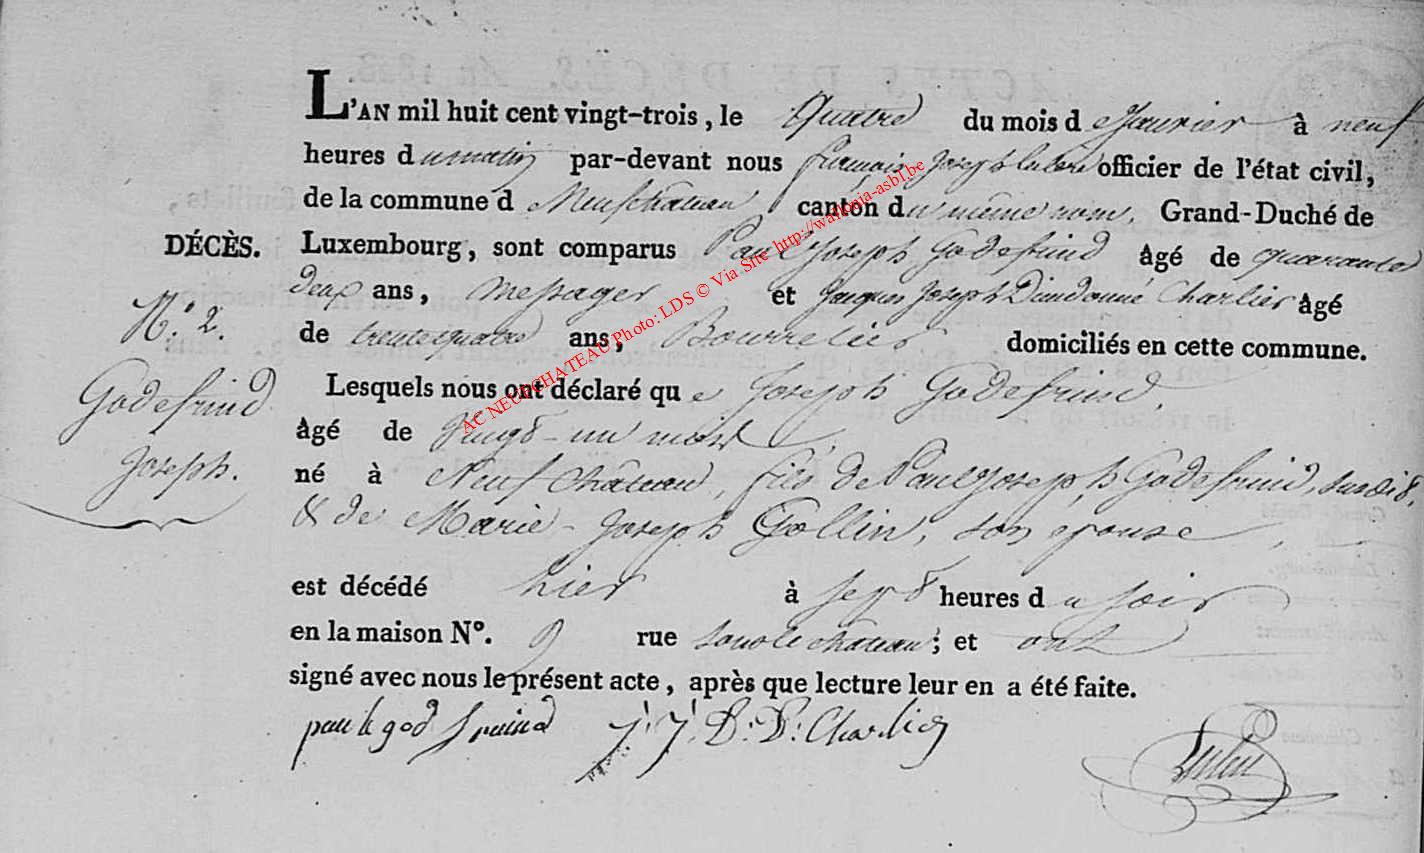 L'AN mil huit cent vingt-trois, le Quatre du mois de Janvier à neuf
heures du matin par-devant nous françois Joseph officier de l'état civil,
de la commune d Neufchateau canton du même nom, Grand-Duché de
DÉCÈS. Luxembourg, sont comparus Paul Joseph Godefrind âgé de quarante
deux ans, Messager et Jacques Joseph Dieudonné Charlier âgé
N.º 2. de trente quatre ans, Bourrelier domiciliés en cette commune.
Godefrind Lesquels nous ont déclaré que Joseph Godefrind,
âgé de Vingt-un mois,
Joseph. né à Neufchâteau, fils de Paul Joseph Godefrind, susdit,
& de Marie-Joseph Gollin, son epouse,
est décédé hier à sept heures du soir
en la maison Nº. 9 rue sous le château; et ont
signé avec nous le présent acte, après que lecture leur en a été faite.
paul god frind J. J. D. D. Charlier
AC NEUFCHATEAU Photo: LDS © Via Site http://wallonia-asbl.be